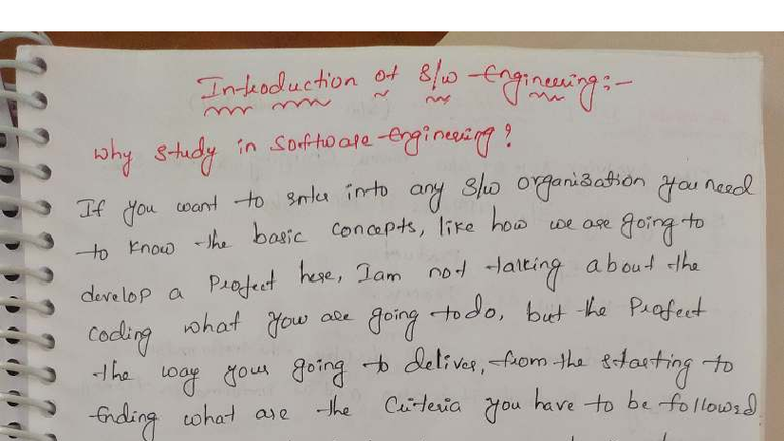 Introduction of S/w Engineering:-
Why study in Software Engineering?
If you want to enter into any S/w organisation you need
to know the basic concepts, like how we are going to
develop a Project here, I am not talking about the
coding what you are going to do, but the Project
the way your going to deliver, from the starting to
Ending what are the Criteria you have to be followed